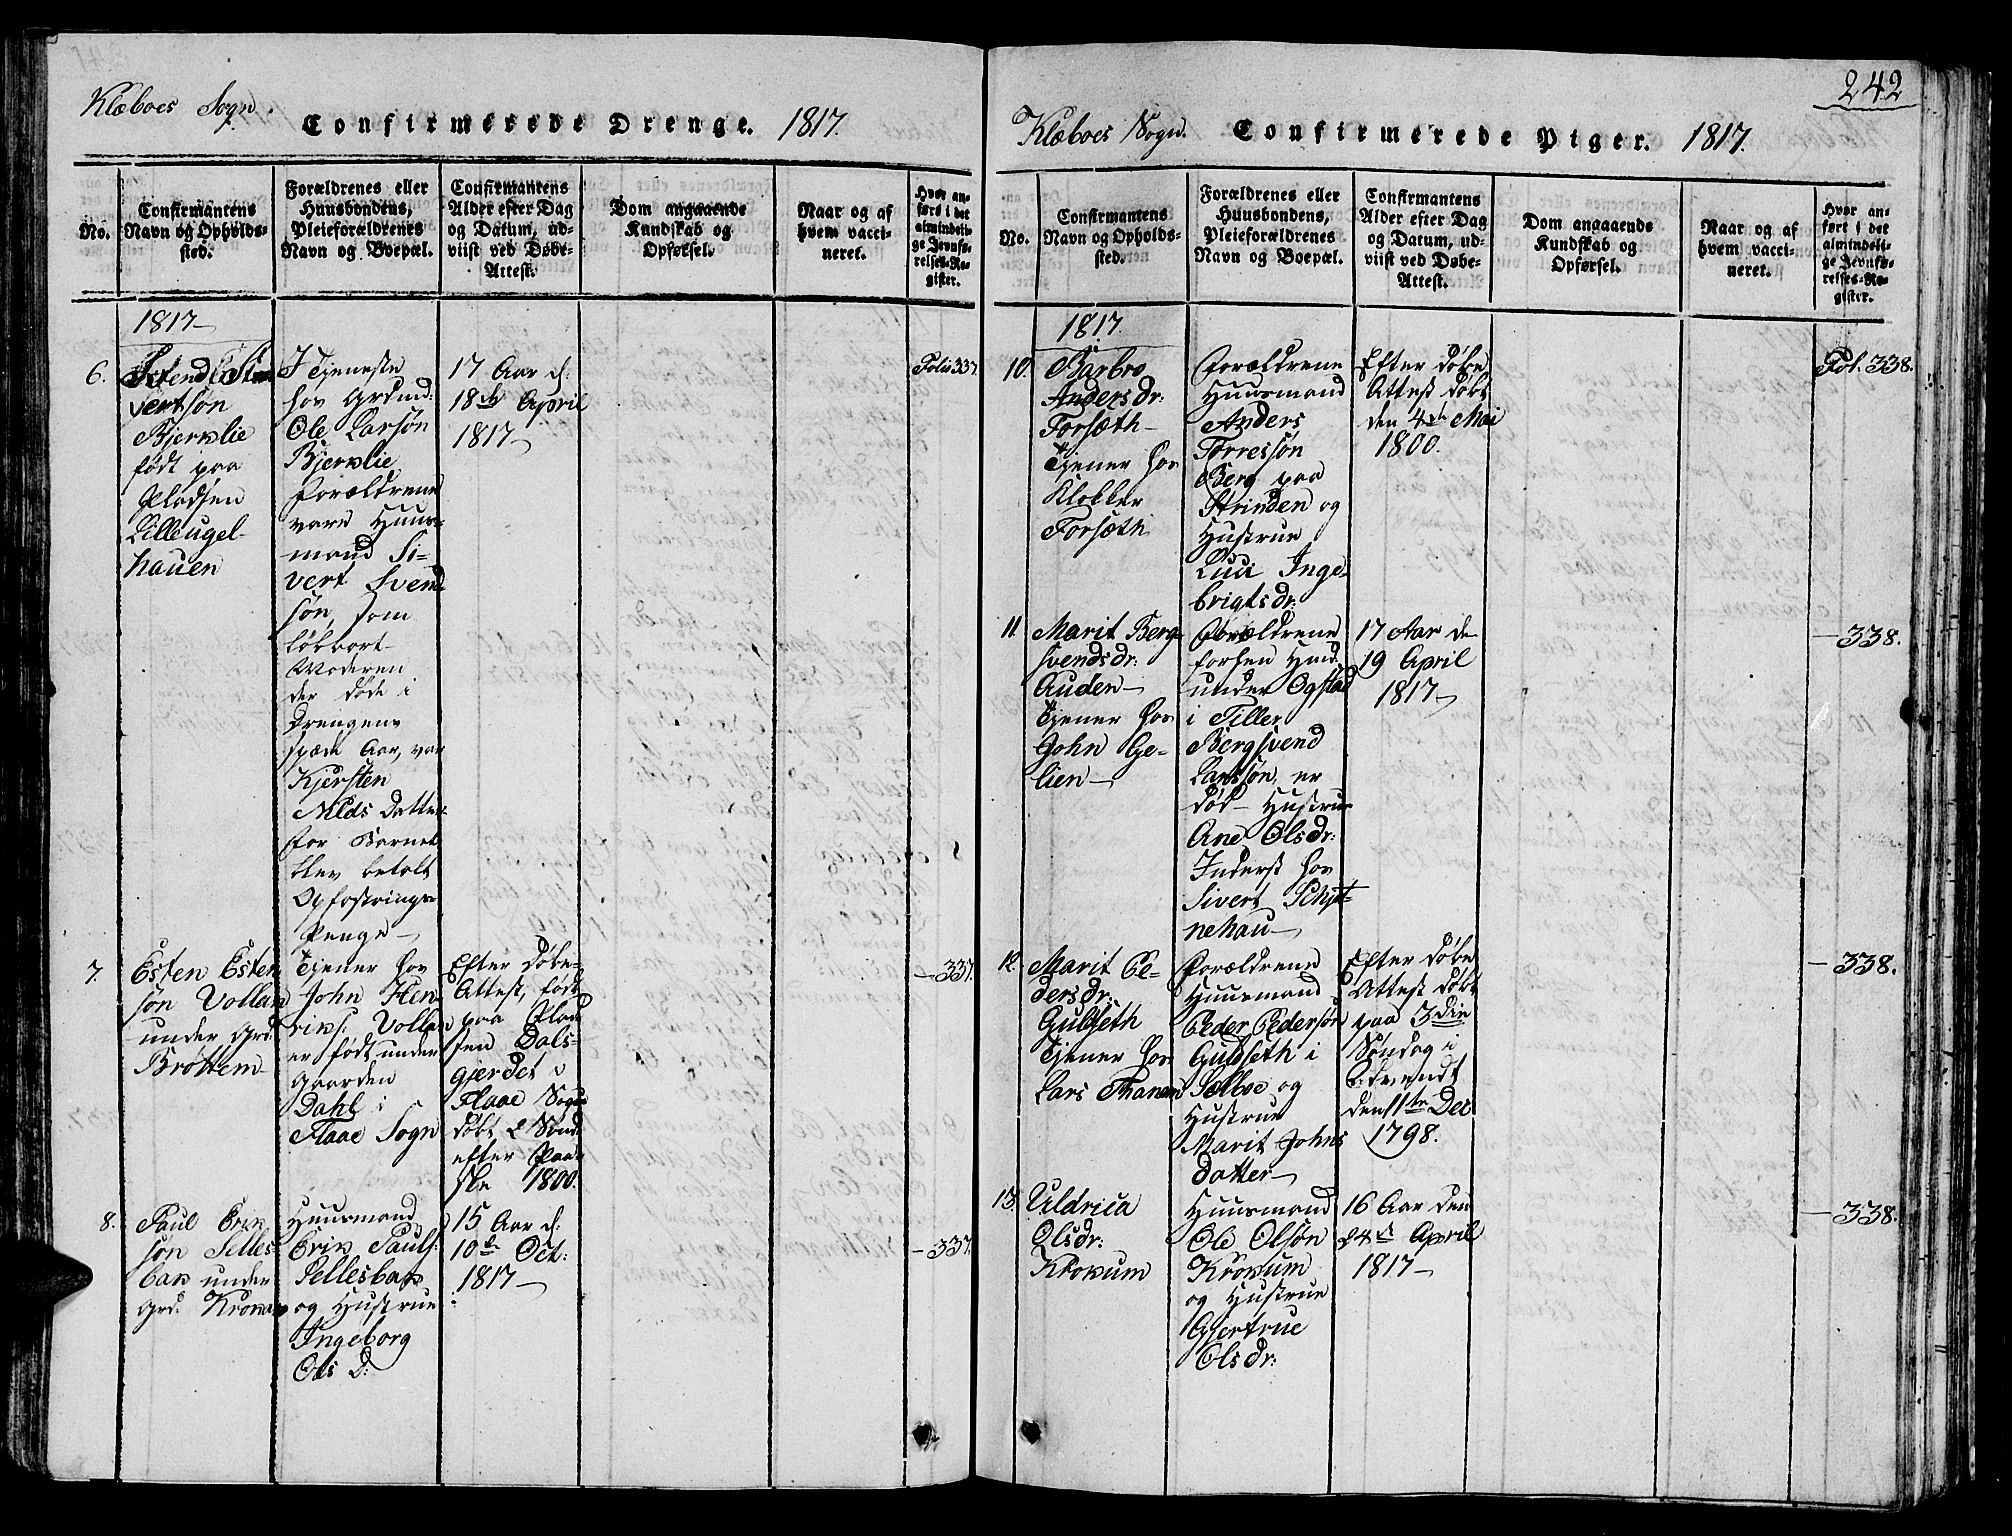 Klæboes Sogn.
Confirmerede Drenge. 1817.
No.
Confirmantens
Navn og Opholds-
sted.
Forældrenes eller
Huusbondens,
Pleieforældrenes
Navn og Boepæl.
Confirmantens
Alder efter Dag
og Datum, ud-
viist ved Døbe-
Attest.
Dom angaaende
Kundskab og
Opførsel.
Naar og af
hvem vacci-
neret.
Hvor an-
ført i det
almindeli-
ge Jevnfø-
relses-Re-
gister.
1817
6.
vertsøn
Bjerklie
født paa
Pladsen
Lilleugel-
hauen
I Tjeneste
hos Grdmd:
Ole Larsøn
Bjerklie
Forældrene
vare Huus-
mand Si-
vert Svend
søn, som
løb bort
Moderen
der døde i
Drengens
spæde Aar, var
Kjersten
Nilds Datter
for Barnet
blev betalt
Opfostrings-
Penge
17 Aar d:
18de April
1817
Folii 337.
7.
Esten Esten
søn Vollan
under Grd:
Brøttem
Tjener hos
John Hen-
riks: Vollan
er født under
Gaarden
Dahl i
Flaae Sogn
Efter Døbe-
Attest, født
paa Plad
sen Dals-
gjerdet i
Flaae Sogn
døbt 2 Sønd:
efter Paa-
ske 1800.
337.
8.
Paul Erik
søn Selles-
bak under
Grd: Krokan
Huusmand
Erik Pauls:
Sellesbak
og Hustrue
Ingeborg
Ols D:
15 Aar d:
10de Oct:
1817
337.
242
Klæboes Sogn.
Confirmerede Piger. 1817.
No.
Confirmantens
Navn og Opholds-
sted.
Forældrenes eller
Huusbondens,
Pleieforældrenes
Navn og Boepæl.
Confirmantens
Alder efter Dag
og Datum, ud-
viist ved Døbe-
Attest.
Dom angaaende
Kundskab og
Opførsel.
Naar og af
hvem vacci-
neret.
Hvor an-
ført i det
almindeli-
ge Jevnfø-
relses-Re-
gister.
1817.
10.
Barbro
Andersdr:
Forsæth
Tjener hos
Klokker
Forsæth
Forældrene
Huusmand
Anders
Torressøn
Berg paa
Strinden og
Hustrue
Luci Inge-
brigtsdr:
Efter Døbe
Attest døbt
den 4de Mai
1800.
Fol. 338.
11.
Marit Berg-
svendsdr:
Auden
Tjener hos
John Ge-
lien
Forældrene
forhen Hmd:
under Ogstad
i Tiller
Bergsvend
Larssøn, er
død Hustrue
Ane Olsdr:
Inderst hos
Sivert Schjt-
nehau
17 Aar de
19 April
1817
338.
12.
Marit Pe-
dersdr:
Guldseth
Tjener hos
Lars Thanem
Forældrene
Huusmand
Peder Pedersøn
Guldseth i
Sælboe og
Hustrue
Marit Johns
datter
Efter Døbe
Attest døbt
paa 3die
Søndag i
Advendt
den 11te Dec
1798.
338.
13.
Uldrica
Olsdr:
Krokum
Huusmand
Ole Olsøn
Krokum
og Hustrue
Gjertrue
Olsdr:
16 Aar den
24de April
1817
338.